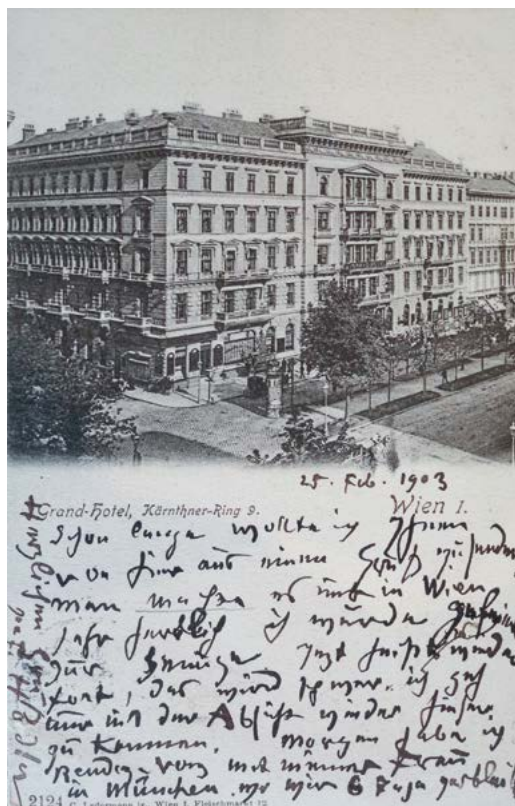 25. Feb. 1903
Grand-Hotel, Kärnthner-Ring 9. Wien I.
Schon lange wollte ich Ihnen
von hier aus einen Gruß zusenden
man es in Wien
sehr ich wurde
zur jetzt heißt wieder
fort, das wird schwer. ich geh
nur mit der Absicht wieder hieher
zu kommen. Morgen habe ich
Rendez-vous mit meiner Frau
in München, wo wir 6 Tage
2124 C. Ledermann jr. Wien I. Fleischmarkt 12.
Herzlichen Gruß